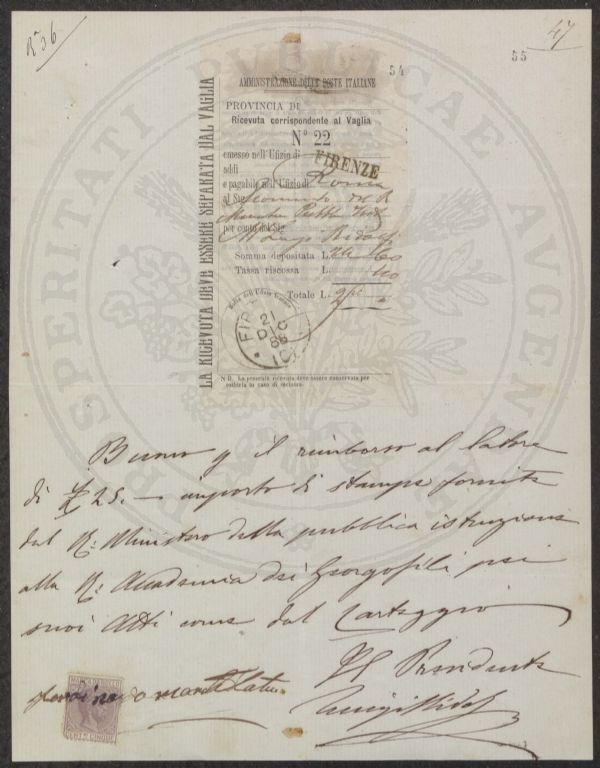 Rº 36
47
55
54
AMMINISTRAZIONE DELLE POSTE ITALIANE
PROVINCIA DI
Ricevuta corrispondente al Vaglia
Nº 22
emesso nell'Ufizio di FIRENZE
addì
e pagabile nell'Ufizio di Roma
al Sig. Economo del R.
Pubb
per conto del Sig. Ridolfi
Somma depositata L. 24 60
Tassa riscossa L. 40
Totale L. 25
Bollo dell'Ufizio
21
DIC
88
N B. La presente ricevuta deve essere conservata per
esibirla in caso di reclamo.
LA RICEVUTA DEVE ESSERE SEPARATA DAL VAGLIA
PROSPERITATI PUBLICAE AUGENDAE
Buono p il rimborso al latore
di £ 25.— importo di stampe fornite
dal R. Ministero della pubblica istruzione
alla R. Accademia dei Georgofili pei
suoi Atti come dal carteggio
Il Presidente
Luigi Ridolfi